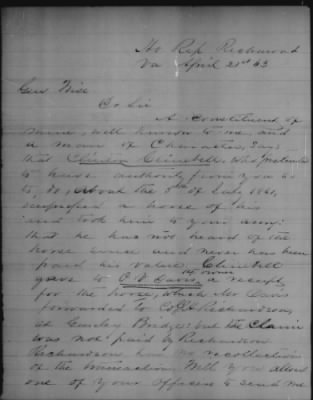 Ho Rep Richmond
Va April 21st 63
Gen Wise
Dr Sir
A Constituent of
mine, well known to me and
a man of Character, says
that Clinton Climbell, who
to have authority from you so
to, do, about the 5th of July 1861,
a horse of his
and took him to your army:
that he has not heard of the
horse since and never has been
paid his value. Climbell
gave to C. R. Davis, the owner a receipt
for the horse, which Mr Davis
forwarded to Col Richardson,
at Gauley Bridge: but the Claim
was not paid by Richardson
Richardson has no recollection
of the transaction. Will you allow
one of your officers to send me